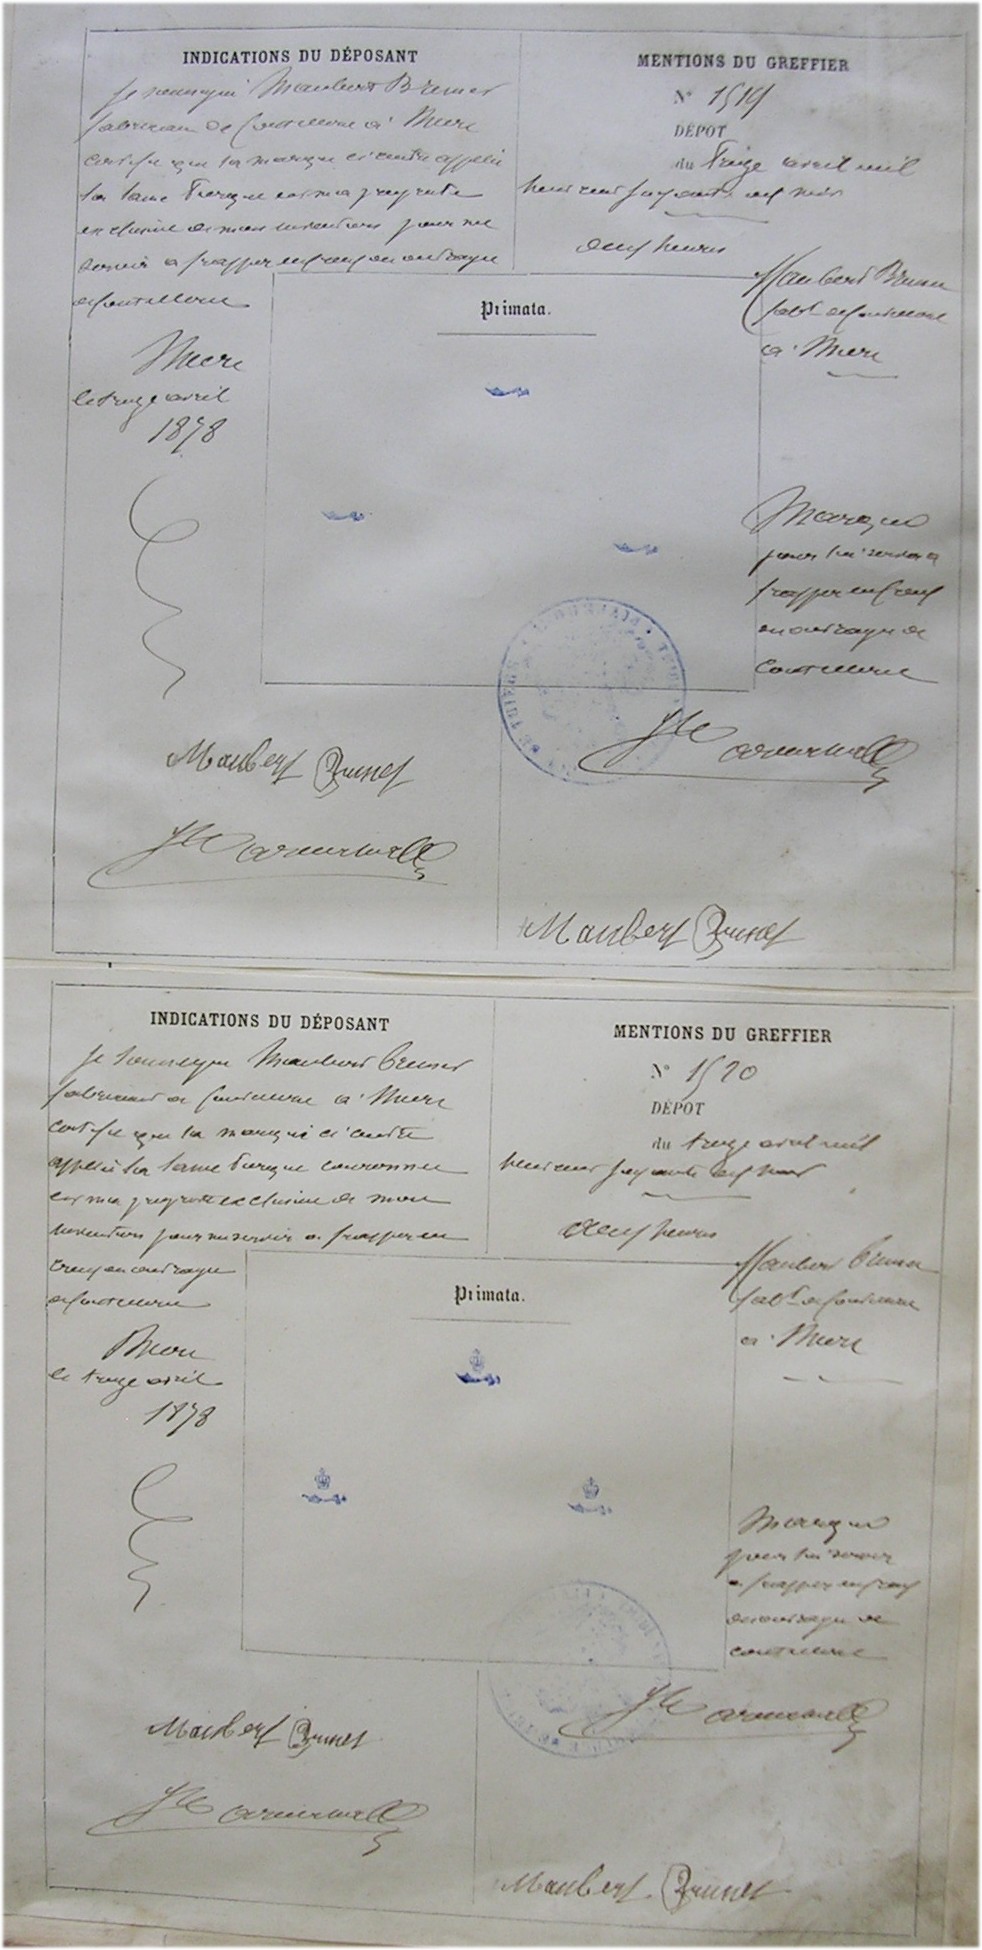 INDICATIONS DU DÉPOSANT
Je soussigné Maubert Brunet
fabricant de coutellerie à
certifie que la marque ci contre appelée
la lame Turque est ma propriété
exclusive de mon invention pour me
servir à frapper en creux en ouvrages
de coutellerie
le treize avril
1878
Maubert Brunet
MENTIONS DU GREFFIER
N° 1519
DÉPOT
du Treize avril mil
huit cent soixante dix huit
deux heures
Maubert Brunet
fabt de coutellerie
à
Primata.
Marque
pour lui servir à
frapper en creux
en ouvrages de
coutellerie
Maubert Brunet
INDICATIONS DU DÉPOSANT
Je soussigné Maubert Brunet
fabricant de coutellerie à
certifie que la marque ci contre
appelée la lame Turque couronnée
est ma propriété exclusive de mon
invention pour me servir à frapper en
creux en ouvrages
de coutellerie
le treize avril
1878
Maubert Brunet
MENTIONS DU GREFFIER
N° 1520
DÉPOT
du treize avril mil
huit cent soixante dix huit
deux heures
Maubert Brunet
fabt de coutellerie
à
Primata.
Marque
pour lui servir
à frapper en creux
en ouvrages de
coutellerie
Maubert Brunet